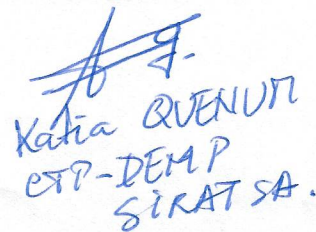 Katia QUENUM
CTP-DEMP
SIRAT SA.